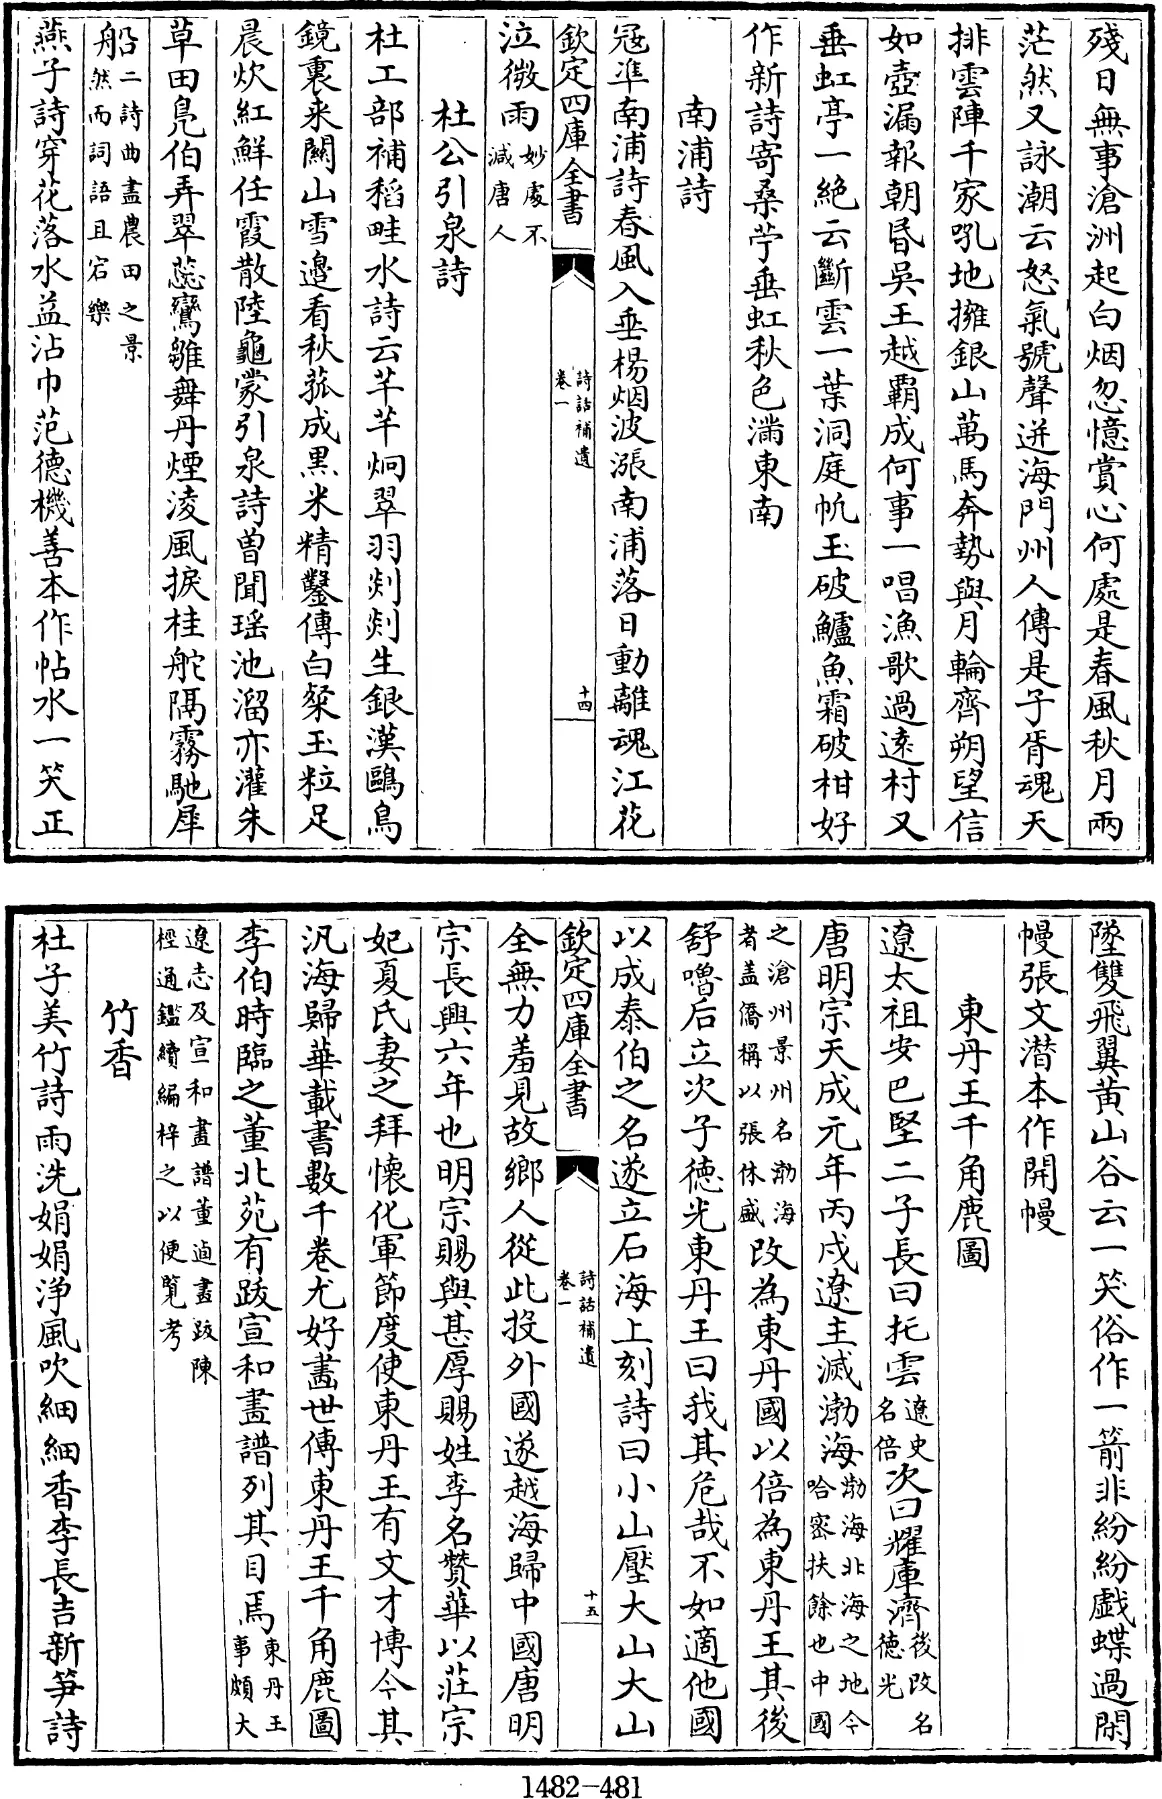 殘日無事滄洲起白烟忽憶賞心何處是春風秋月兩
茫然又詠潮云怒氣號聲迸海門州人傳是子胥魂天
排雲陣千家吼地擁銀山萬馬奔勢與月輪齊朔望信
如壺漏報朝昏吳王越覇成何事一唱漁歌過遠村又
垂虹亭一絕云斷雲一葉洞庭帆玉破鱸魚霜破柑好
作新詩寄桑苧垂虹秋色滿東南
南浦詩
寇準南浦詩春風入垂楊烟波漲南浦落日動離魂江花
欽定四庫全書
詩話補遺
卷一
十四
泣微雨妙處不
減唐人
杜公引泉詩
杜工部補稻畦水詩云芊芊炯翠羽剡剡生銀漢鷗鳥
鏡裏来關山雪邊看秋菰成黑米精鑿傳白粲玉粒足
晨炊紅鮮任霞散陸龜蒙引泉詩曽聞瑶池溜亦灌朱
草田鳧伯弄翠蕊鸞雛舞丹煙淩風捩桂舵隔霧馳犀
船二詩曲盡農田之景
然而詞語且宕樂
燕子詩穿花落水益沾巾范德機善本作帖水一笑正
墜雙飛翼黄山谷云一笑俗作一箭非紛紛戯蝶過閑
幔張文潜本作開幔
東丹王千角鹿圖
遼太祖安巴堅二子長曰托雲遼史
名倍次曰耀庫濟後改名
德光
唐明宗天成元年丙戌遼主滅渤海渤海北海之地今
哈密扶餘也中國
之滄州景州名渤海
者盖僑稱以張休盛改為東丹國以倍為東丹王其後
舒嚕后立次子德光東丹王曰我其危哉不如適他國
以成泰伯之名遂立石海上刻詩曰小山壓大山大山
欽定四庫全書
詩話補遺
卷一
十五
全無力羞見故鄉人從此投外國遂越海歸中國唐明
宗長興六年也明宗賜與甚厚賜姓李名贊華以莊宗
妃夏氏妻之拜懷化軍節度使東丹王有文才博今其
汎海歸華載書數千卷尤好畵世傳東丹王千角鹿圖
李伯時臨之董北苑有跋宣和畵譜列其目焉東丹王
事頗大
遼志及宣和畵譜董逌畵跋陳
桱通鑑續編梓之以便覽考
竹香
杜子美竹詩雨洗娟娟浄風吹細細香李長吉新笋詩
1482-481